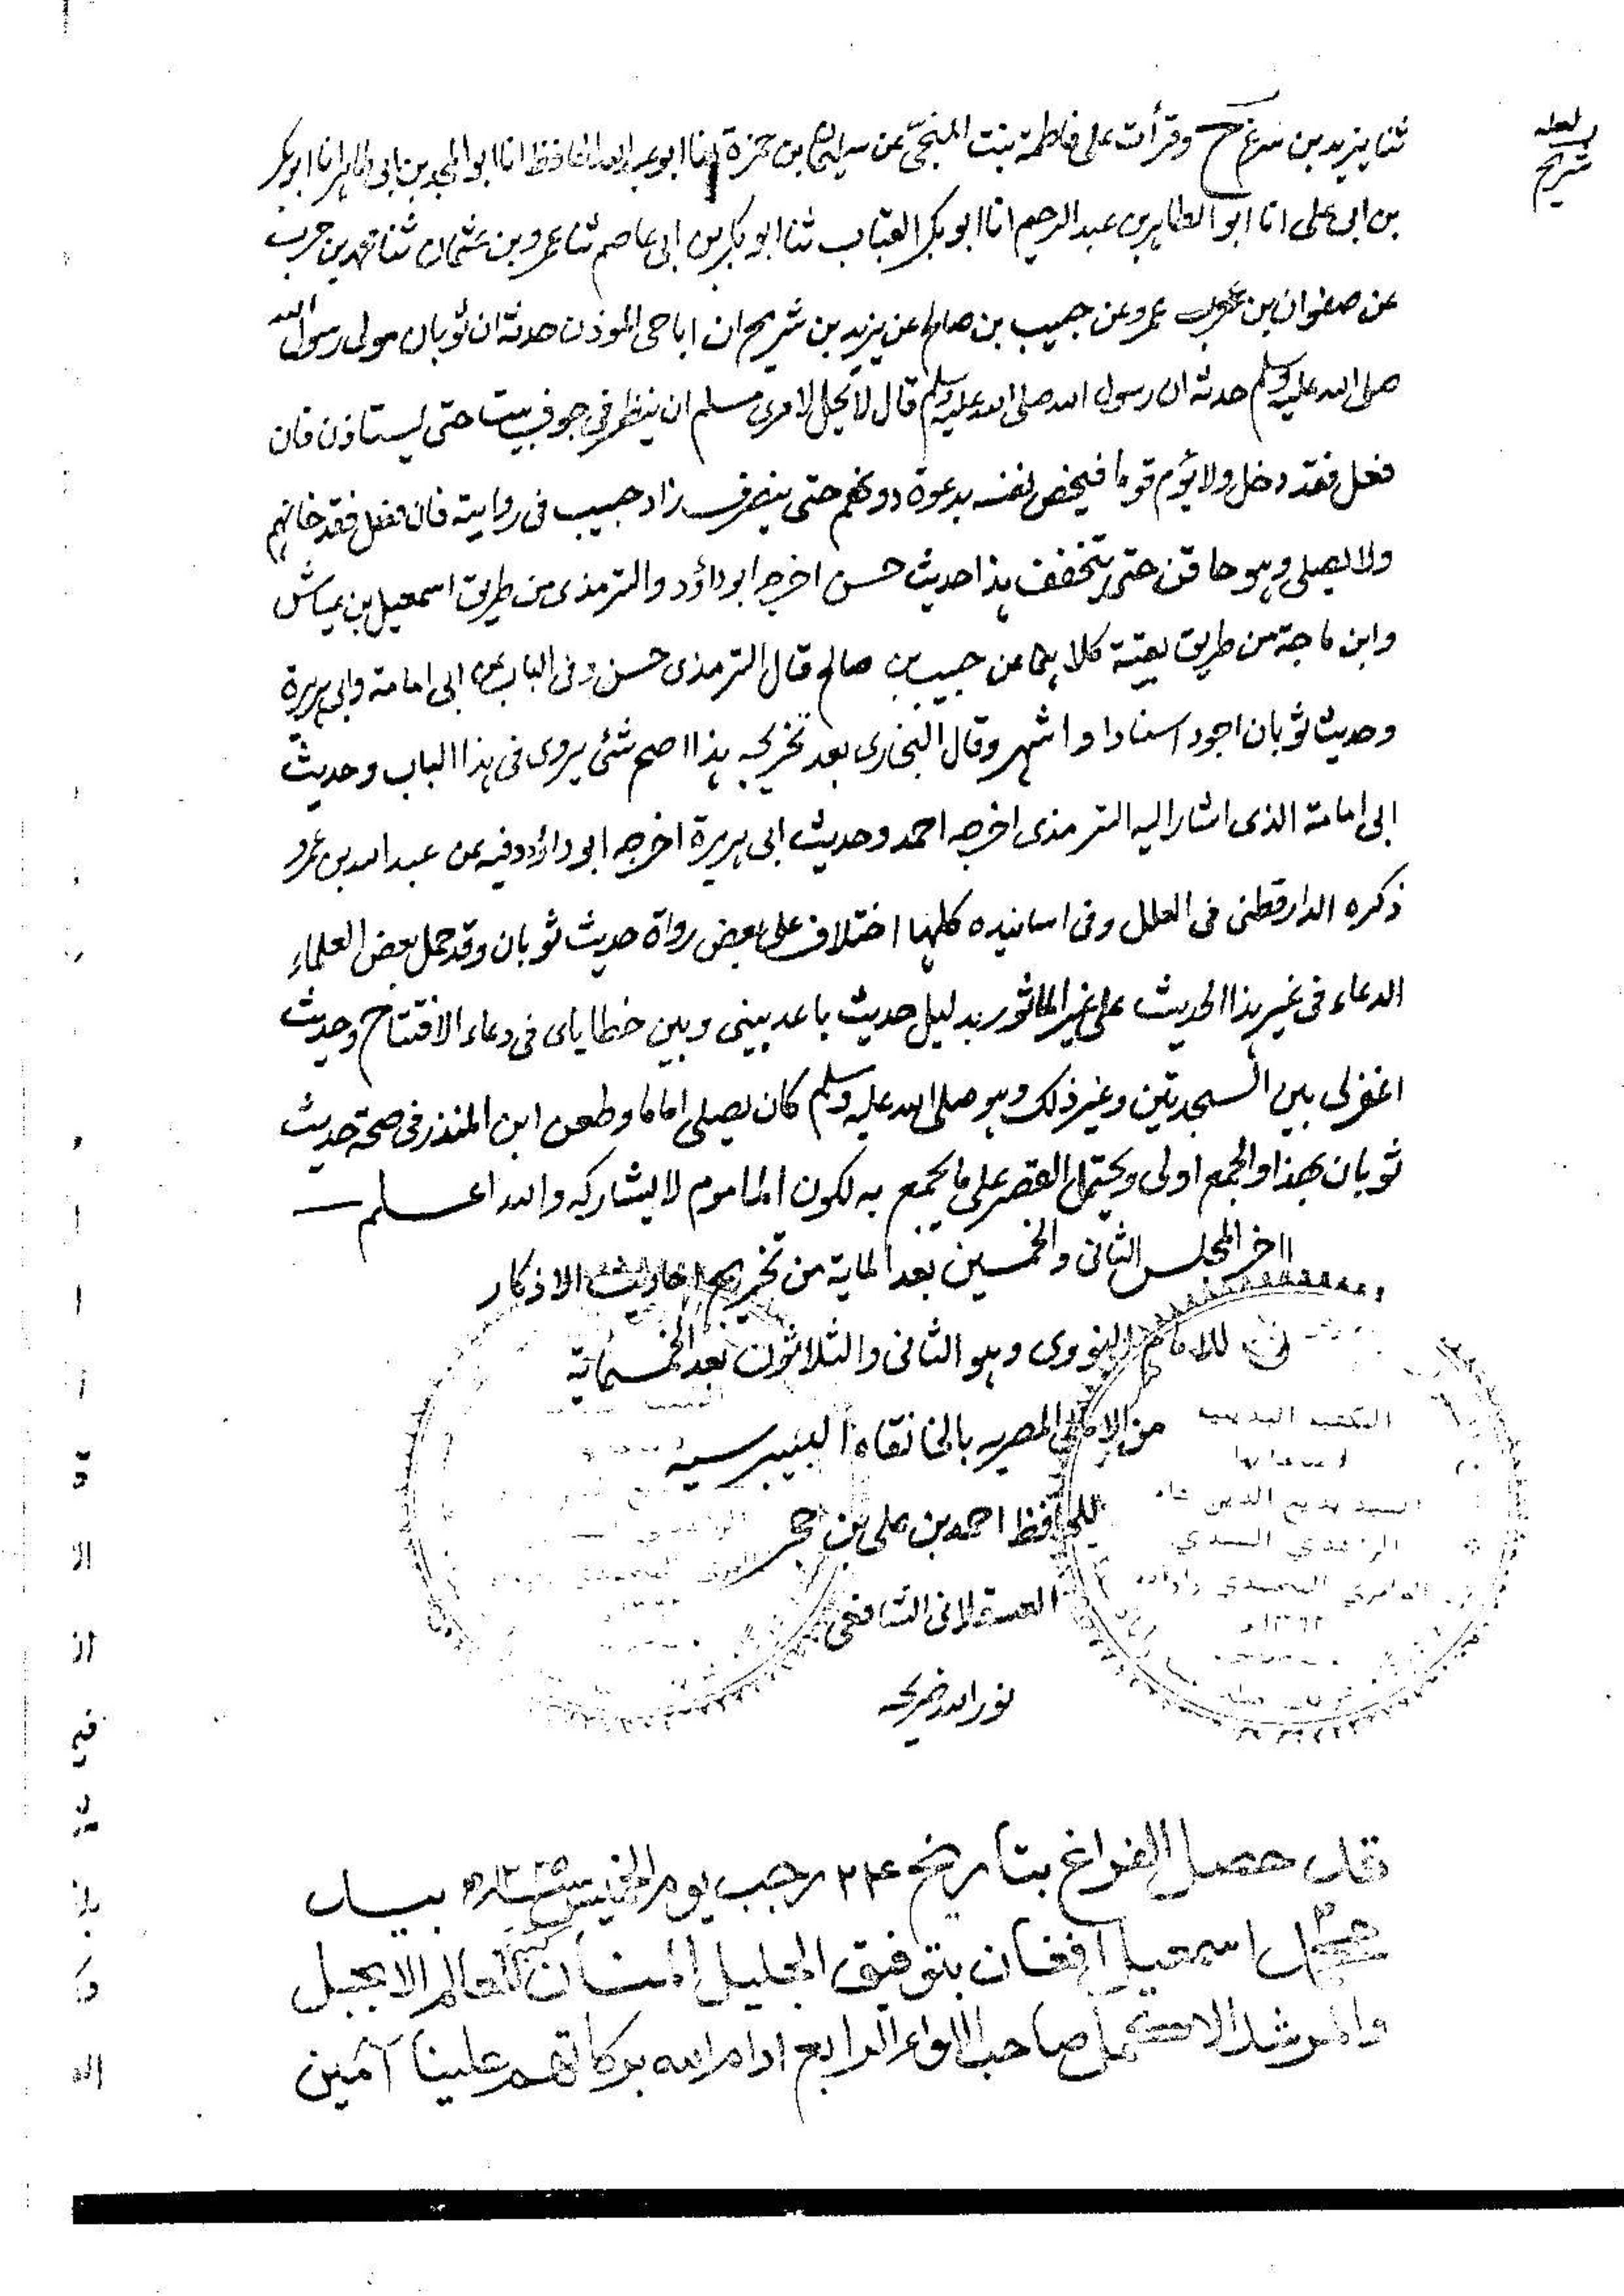 لعله
شريح
ثنا يزيد بن سرع ح وقرأت على فاطمة بنت المنجى عن سليمان بن حمزة انا ابو عبد الله الحافظ انا ابو المجد بن ابى طاهر انا ابو بكر
بن ابى على انا ابو الطاهر بن عبد الرحيم انا ابو بكر القباب ثنا ابو بكر بن ابى عاصم ثنا عمرو بن عثمان ثنا محمد بن حرب
عن صفوان بن عمرو عن حبيب بن صالح عن يزيد بن شريح ان ابا حى المؤذن حدثه ان ثوبان مولى رسول الله
صلى الله عليه وسلم حدثه ان رسول الله صلى الله عليه وسلم قال لا يحل لامرئ مسلم ان ينظر فى جوف بيت حتى يستاذن فان
فعل فقد دخل ولا يؤم قوما فيخص نفسه بدعوة دونهم حتى ينصرف زاد حبيب فى روايته فان فعل فقد خانهم
ولا يصلى وهو حاقن حتى يتخفف هذا حديث حسن اخرجه ابو داؤد والترمذى من طريق اسمعيل بن عياش
وابن ماجة من طريق بقية كلاهما عن حبيب بن صالح قال الترمذى حسن وفى الباب عن ابى امامة وابى هريرة
وحديث ثوبان اجود اسنادا واشهر وقال البخارى بعد تخريجه هذا اصح شئ يروى فى هذا الباب وحديث
ابى امامة الذى اشار اليه الترمذى اخرجه احمد وحديث ابى هريرة اخرجه ابو داؤد وفيه عن عبد الله بن عمرو
ذكره الدارقطنى فى العلل وفى اسانيده كلها اختلاف على بعض رواة حديث ثوبان وقد حمل بعض العلماء
الدعاء فى غير هذا الحديث على غير الماثور بدليل حديث باعد بينى وبين خطاياى فى دعاء الافتتاح وحديث
اغفر لى بين السجدتين وغير ذلك وهو صلى الله عليه وسلم كان يصلى اماما وطعن ابن المنذر فى صحة حديث
ثوبان بهذا والجمع اولى ويحتمل القصر على ما يجمع به لكون الماموم لا يشاركه والله اعلم
اخر المجلس الثانى والخمسين بعد الماية من تخريج احاديث الاذكار
للامام النووى وهو الثانى والثلاثون بعد الخمسماية
من الامالى المصريه بالخانقاه البيبرسيه
للحافظ احمد بن على بن حجر
العسقلانى الشافعى
نور الله ضريحه
السيد بديع الدين شاه
الراشدي السندي
قد حصل الفراغ بتاريخ ٢٤ رجب يوم الخميس بيد
محمد اسمعيل افغان بتوفيق الجليل المنان للعالم الابجل
والمرشد الاكمل صاحب اللواء الرابع ادام الله بركاتهم علينا آمين